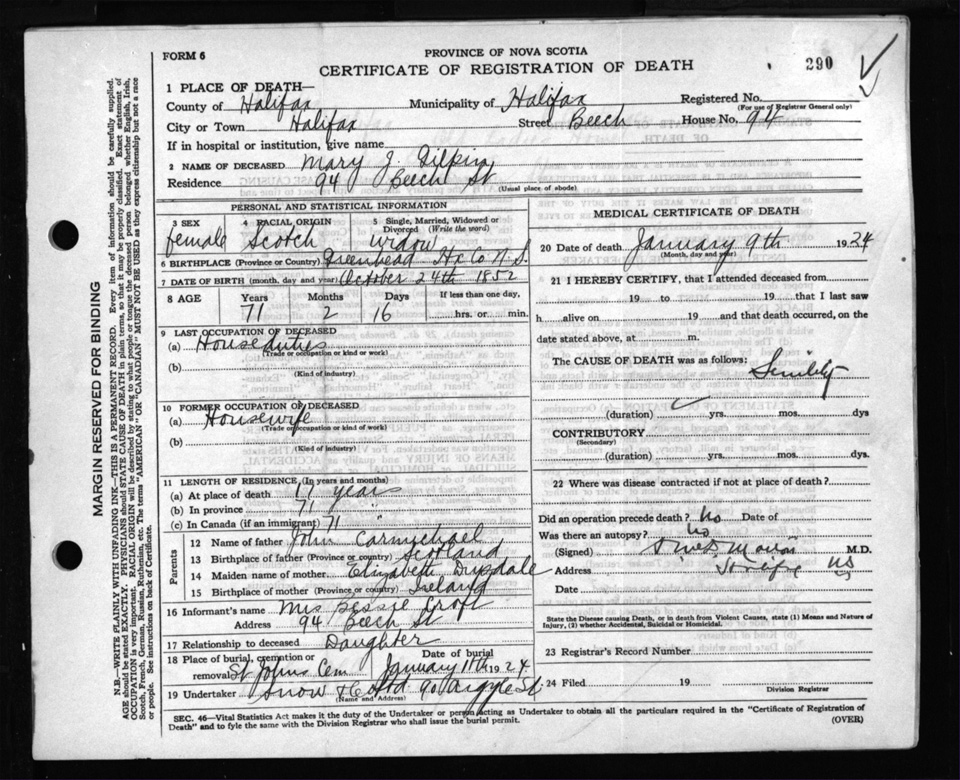 MARGIN RESERVED FOR BINDING
N.B.—WRITE PLAINLY WITH UNFADING INK—THIS IS A PERMANENT RECORD. Every item of information should be carefully supplied.
AGE should be stated EXACTLY. PHYSICIANS should STATE CAUSE OF DEATH in plain terms, so that it may be properly classified. Exact statement of
OCCUPATION is very important. RACIAL ORIGIN will be described by stating to what people or tongue the deceased person belonged whether English, Irish,
Scotch, French, German, Russian, Ruthenian, etc. The terms "AMERICAN" OR "CANADIAN" MUST NOT BE USED as they express citizenship but not a race
or people. See instructions on back of Certificate.
FORM 6
PROVINCE OF NOVA SCOTIA
CERTIFICATE OF REGISTRATION OF DEATH
290
1 PLACE OF DEATH—
County of Halifax Municipality of Halifax Registered No.
(For use of Registrar General only)
City or Town Halifax Street Beech House No. 94
If in hospital or institution, give name
2 NAME OF DECEASED Mary J. Gilpin
Residence 94 Beech St
(Usual place of abode)
PERSONAL AND STATISTICAL INFORMATION
3 SEX 4 RACIAL ORIGIN 5 Single, Married, Widowed or
Divorced (Write the word)
female Scotch Widow
6 BIRTHPLACE (Province or Country) Greenhead Hx Co N.S.
7 DATE OF BIRTH (month, day and year) October 24th 1852
8 AGE Years Months Days If less than one day,
71 2 16 hrs. or min.
9 LAST OCCUPATION OF DECEASED
(a) House duties
(Trade or occupation or kind or work)
(b)
(Kind of industry)
10 FORMER OCCUPATION OF DECEASED
(a) Housewife
(Trade or occupation or kind or work)
(b)
(Kind of industry)
11 LENGTH OF RESIDENCE (In years and months)
(a) At place of death years
(b) In province 71 "
(c) In Canada (if an immigrant) 71 "
Parents
12 Name of father John Carmichael
13 Birthplace of father (Province or country) Scotland
14 Maiden name of mother Elizabeth Drysdale
15 Birthplace of mother (Province or country) Ireland
16 Informant's name Mrs Bessie Croft
Address 94 Beech St
17 Relationship to deceased Daughter
18 Place of burial, cremation or
removal St Johns Cem Date of burial January 11th 1924
19 Undertaker Snow & Co Ltd 90 Argyle St
(Name and Address)
MEDICAL CERTIFICATE OF DEATH
20 Date of death January 9th 1924
(Month, day and year)
21 I HEREBY CERTIFY, that I attended deceased from
19 to 19 that I last saw
h alive on 19 and that death occurred, on the
date stated above, at m.
The CAUSE OF DEATH was as follows:
Senility
(duration) yrs. mos. dys
CONTRIBUTORY
(Secondary)
(duration) yrs. mos. dys.
22 Where was disease contracted if not at place of death?
Did an operation precede death? No Date of
Was there an autopsy? No
(Signed) M.D.
Address Halifax NS
Date
State the Disease causing Death, or in death from Violent Causes, state (1) Means and Nature of
Injury, (2) whether Accidental, Suicidal or Homicidal.
23 Registrar's Record Number
24 Filed 19
Division Registrar
SEC. 46—Vital Statistics Act makes it the duty of the Undertaker or person acting as Undertaker to obtain all the particulars required in the "Certificate of Registration of
Death" and to fyle the same with the Division Registrar who shall issue the burial permit.
(OVER)